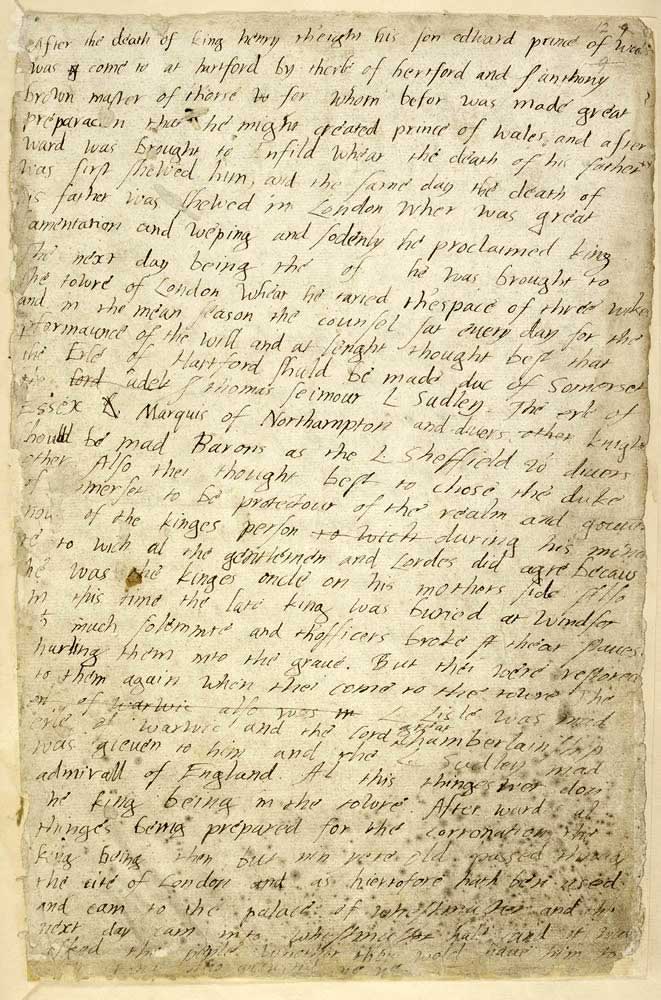 After the death of King henry th'eight his son edward prince of wales
was come to at hartford by th'erle of hertford and S anthony
brown master of th'orse for whom befor was made great
preparacion that he might created prince of wales, and after
ward was brought to Enfild whear the death of his father
was first shewed him, and the same day the death of
his father was shewed in London, wher was great
lamentation and weping and sodenly he proclaimed king
The next day being the of he was brought to
the towre of London whear he taried th'espace of three wekes
and in the mean season the counsel sat every day for the
performaunce of the will and at lenght thought best that
the Erle of Hartford shuld be made duc of Somerset
lord S thomas Seimour L Sudley The erl of
Essex Marquis of Northampton and divers other knights
should be mad Barons as the L Sheffield divers
other Also thei thought best to chose the duke
of Somerset to be protectour of the realm and gover
nour of the kinges person during his minori
te to wich al the gentlemen and Lordes did agre becaus
he was the kinges oncle on his mothers side Also
in this time the late king was buried at Windsor
much solemnite and th'officers broke theat staves
hurling them into the grave. But thei were restored
to them again when thei come to the towre The
L Lisle was mad
erle of warwic and the lord great chamberlainship
was gieven to him and the Sudley mad
admirall of England. Al this thinges wer don
the king being in the towre. After ward al
thinges being prepared for the corronation the
king being then but nin yere old passed
the cite of London and as hiertofore hath bene used
and cam to the palace of whestmister and the
next day cam into whestmister hale and it was
asked the peple thei wold have him to